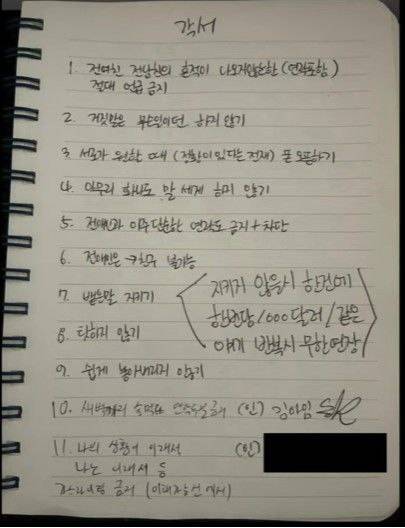 각서
1. 전여친 전남친의 흔적이 나오지않는한 (연락포함)
절대 언급 금지
2. 거짓말은 무슨일이던 하지 않기
3 서로가 원할때 (정황이 있다는 전제) 폰 오픈하기
4. 아무리 화나도 말 세게 하지 않기
5. 전애인과 아주 단순한 연락도 금지 + 차단
6. 전애인은 친구 불가능
7. 뱉은말 지키기
지키지 않을시 한건에
한번당 1000달러 / 같은
얘기 반복시 무한연장
8. 탓하지 않기
9. 쉽게 놓아버리지 않기
10. 새벽까지 술먹고 (인) 김아임
11. 나의 상황이 이래서 (인)
나는 이래서 등
금지 (이해자선에서)